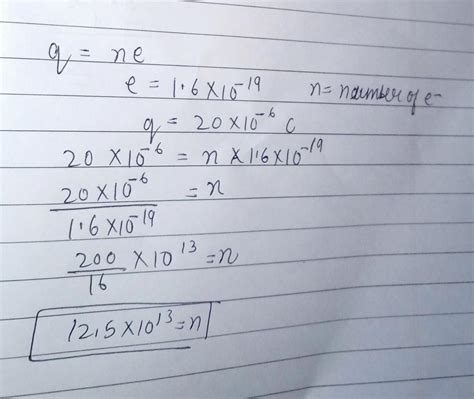 q = ne
e = 1.6 × 10⁻¹⁹ n = number of e⁻
q = 20 × 10⁻⁶ C
20 × 10⁻⁶ = n × 1.6 × 10⁻¹⁹
20 × 10⁻⁶ / 1.6 × 10⁻¹⁹ = n
200 / 16 × 10¹³ = n
12.5 × 10¹³ = n